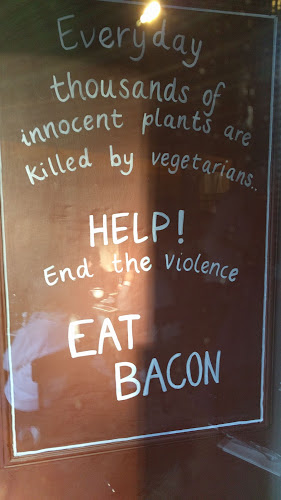 Everyday
thousands of
innocent plants are
killed by vegetarians..
HELP!
End the violence
EAT
BACON